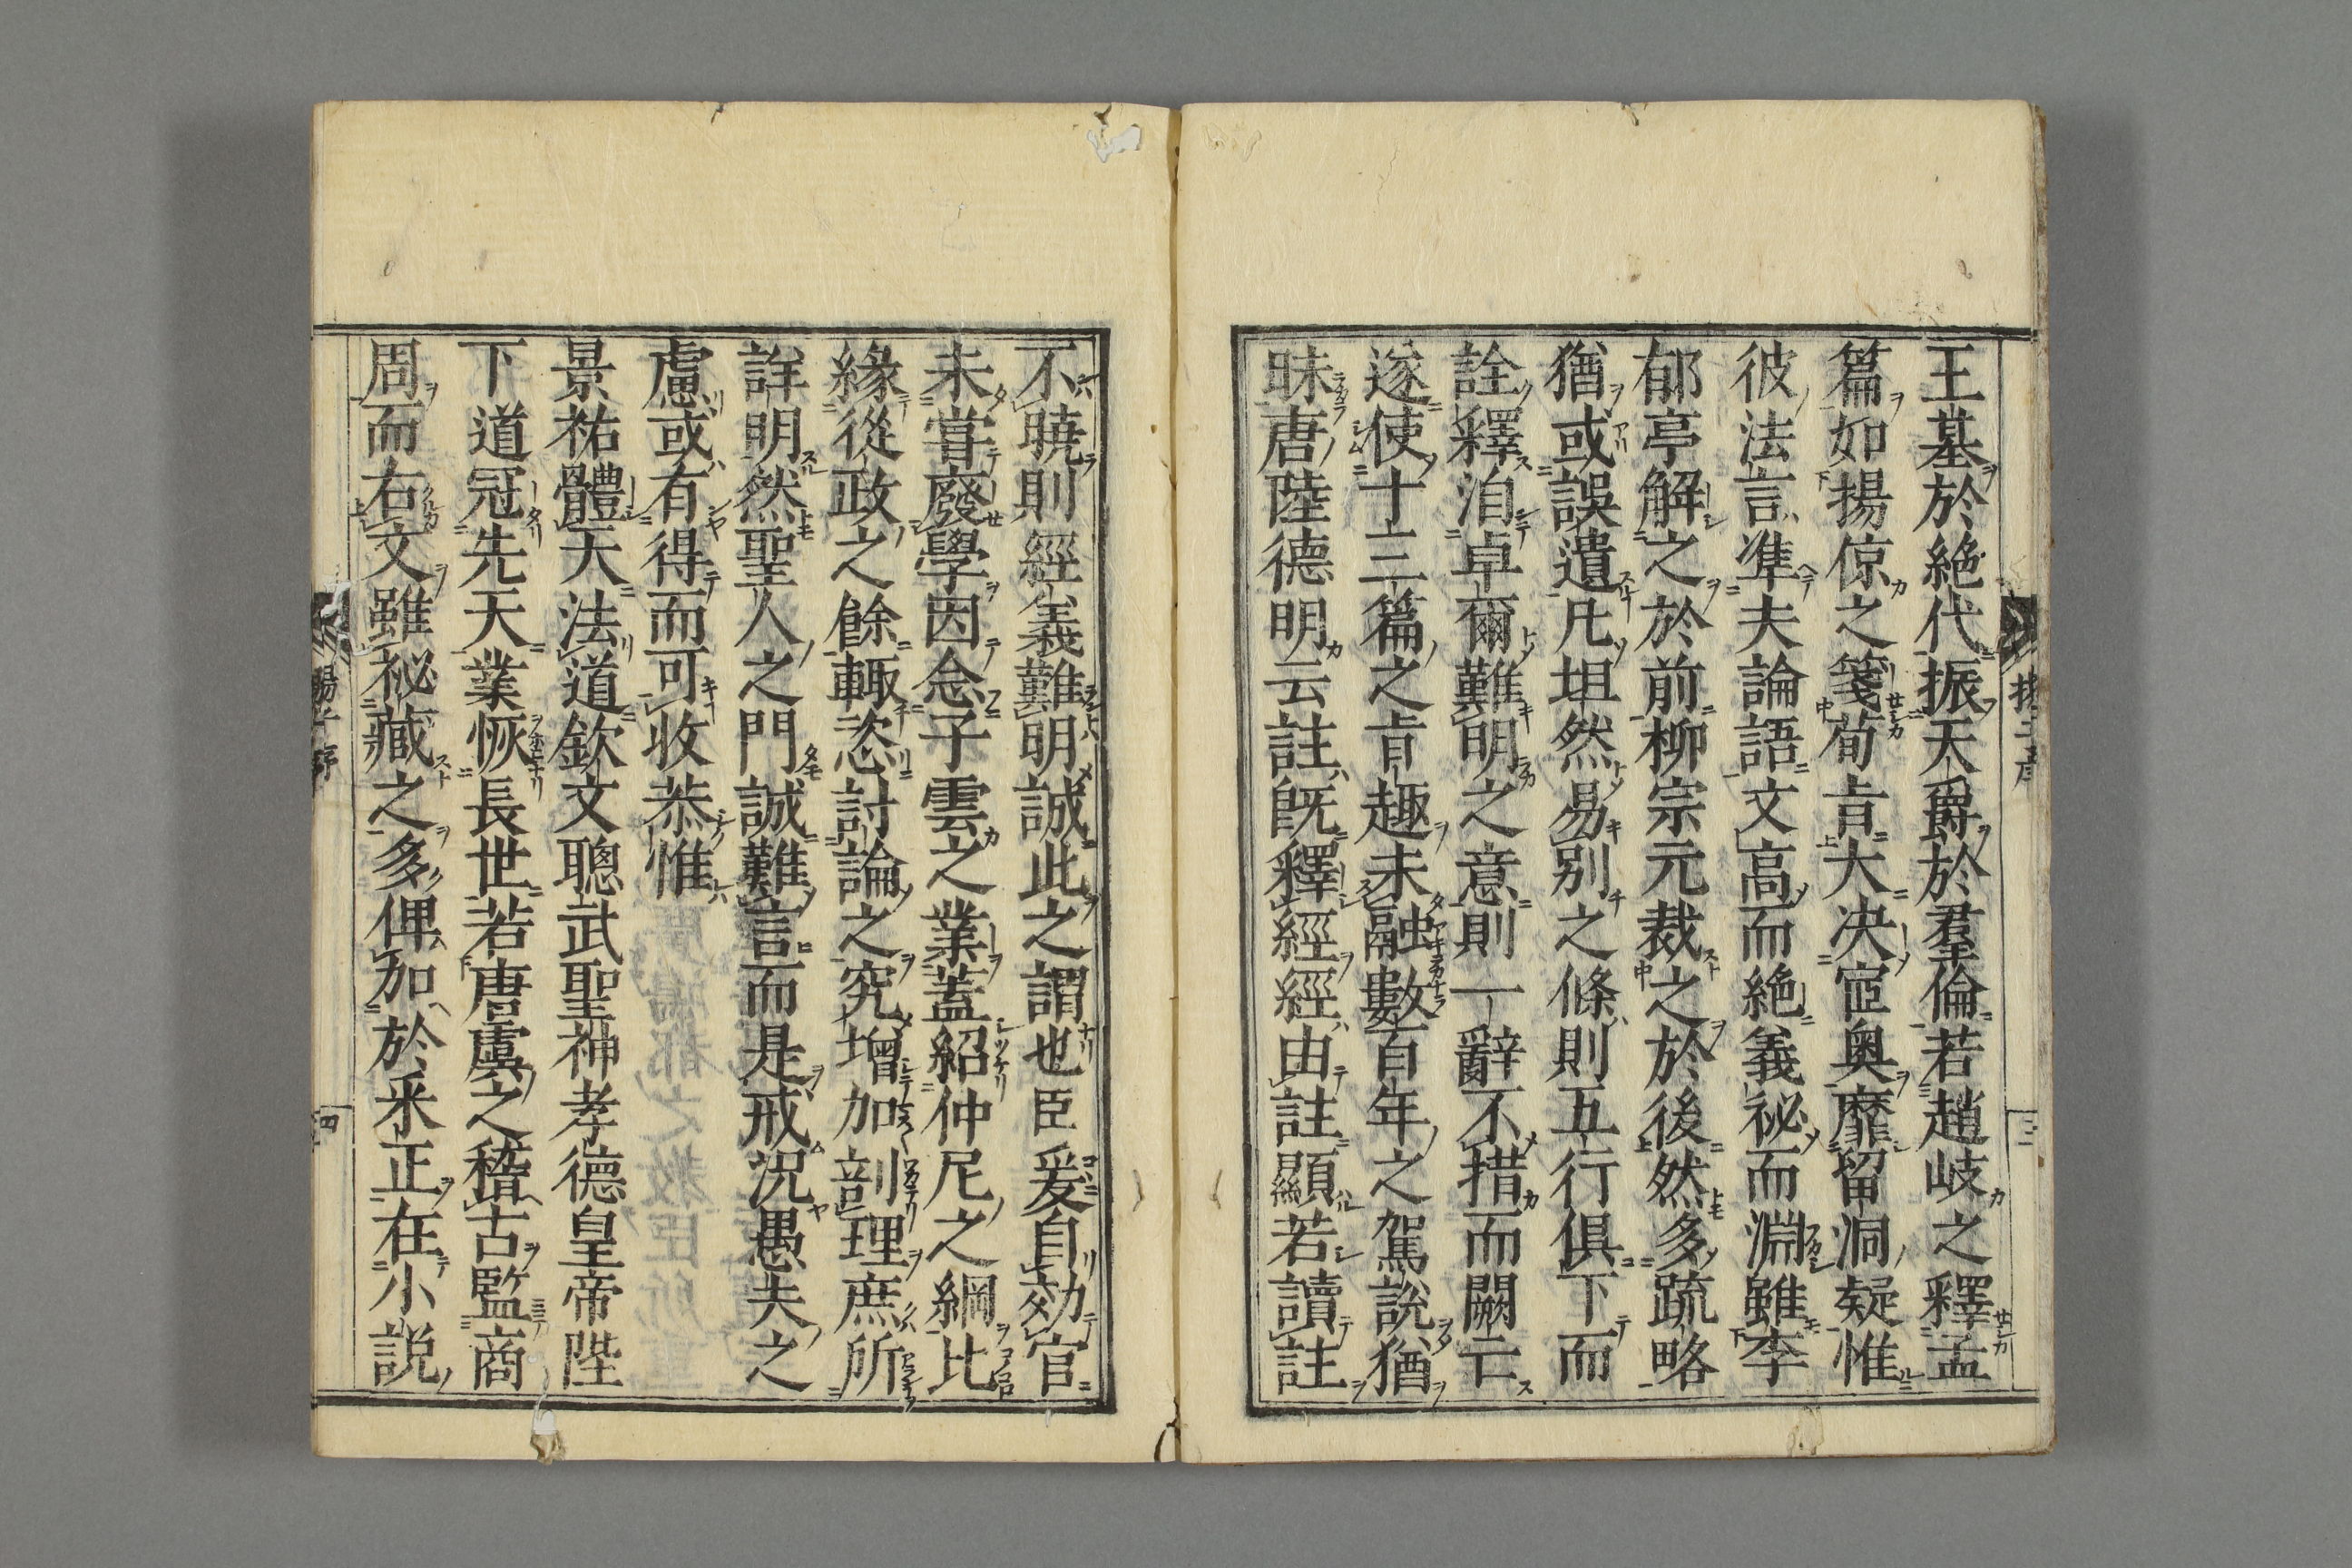 王基於絶代振天爵於羣倫若趙岐之釋孟
篇如揚倞之箋荀㫖大决宧奥靡留洞疑惟
彼法言準夫論語文高而絶義祕而淵雖李
郁亭解之於前柳宗元裁之於後然多疏略
猶或誤遺凡坦然易别之條則五行俱下而
詮釋洎卓爾難明之意則一辭不措而闕云
遂使十三篇之㫖趣未融數百年之駕說猶
昧唐陸德明云註既釋經經由註顯若讀註
不曉則經義難明誠此之謂也臣爰自効官
未嘗廢學因念子雲之業蓋紹仲尼之綱比
緣從政之餘輒恣討論之究增加剖理庶所
詳明然聖人之門誠難言而是戒况愚夫之
慮或有得而可收恭惟
景祐體天法道欽文聰武聖神孝德皇帝陛
下道冠先天業恢長世若唐虞之稽古監商
周而右文雖祕藏之多俾加於釆正在小説
揚子序
三
四